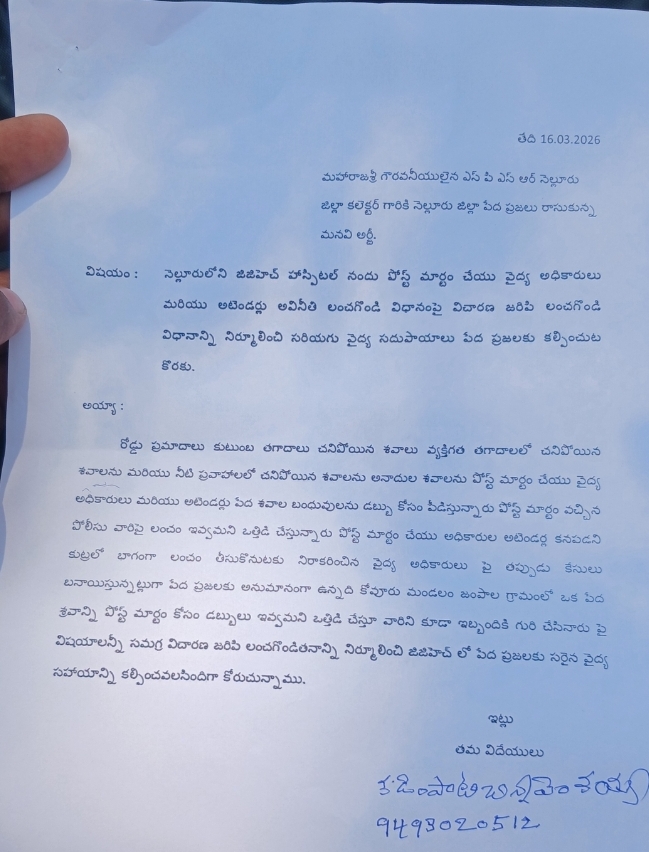 తేది 16.03.2026
మహారాజశ్రీ గౌరవనీయులైన ఎస్ పి ఎస్ ఆర్ నెల్లూరు
జిల్లా కలెక్టర్ గారికి నెల్లూరు జిల్లా పేద ప్రజలు రాసుకున్న
మనవి అర్జీ.
విషయం : నెల్లూరులోని జిజిహెచ్ హాస్పిటల్ నందు పోస్ట్ మార్టం చేయు వైద్య అధికారులు
మరియు అటెండర్లు అవినీతి లంచగొండి విధానంపై విచారణ జరిపి లంచగొండి
విధానాన్ని నిర్మూలించి సరియగు వైద్య సదుపాయాలు పేద ప్రజలకు కల్పించుట
కొరకు.
అయ్యా :
రోడ్డు ప్రమాదాలు కుటుంబ తగాదాలు చనిపోయిన శవాలు వ్యక్తిగత తగాదాలలో చనిపోయిన
శవాలను మరియు నీటి ప్రవాహాలలో చనిపోయిన శవాలను అనాదుల శవాలను పోస్ట్ మార్టం చేయు వైద్య
అధికారులు మరియు అటెండర్లు పేద శవాల బంధువులను డబ్బు కోసం పీడిస్తున్నారు పోస్ట్ మార్టం వచ్చిన
పోలీసు వారిపై లంచం ఇవ్వమని ఒత్తిడి చేస్తున్నారు పోస్ట్ మార్టం చేయు అధికారుల అటెండర్ల కనపడని
కుట్రలో బాగంగా లంచం తీసుకొనుటకు నిరాకరించిన వైద్య అధికారులు పై తప్పుడు కేసులు
బనాయిస్తున్నట్లుగా పేద ప్రజలకు అనుమానంగా ఉన్నది కోవూరు మండలం జంపాల గ్రామంలో ఒక పేద
శ్రవాన్ని పోస్ట్ మార్టం కోసం డబ్బులు ఇవ్వమని ఒత్తిడి చేస్తూ వారిని కూడా ఇబ్బందికి గురి చేసినారు పై
విషయాలన్నీ సమగ్ర విదారణ జరిపి లంచగొండితనాన్ని నిర్మూలించి జిజిహెచ్ లో పేద ప్రజలకు సరైన వైద్య
సహాయాన్ని కల్పించవలసిందిగా కోరుచున్నాము.
ఇట్లు
తమ విదేయులు
9493020512